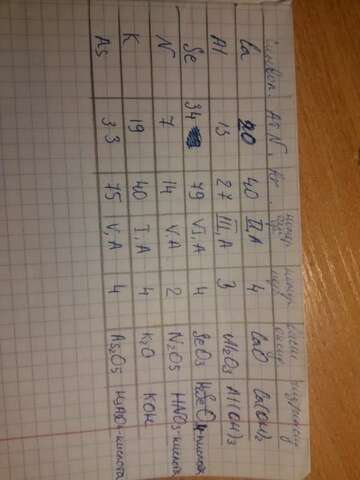 Символ. Ат N. Ar. номер груп номер пер Высш оксид гидроксид
Ca 20 40 II,A 4 CaO Ca(OH)2
Al 13 27 III,A 3 Al2O3 Al(OH)3
Se 34 79 VI,A 4 SeO3 H2SeO4-кислота
N 7 14 V,A 2 N2O5 HNO3-кислота
K 19 40 I,A 4 K2O KOH
As 33 75 V,A 4 As2O5 H3AsO4-кислота